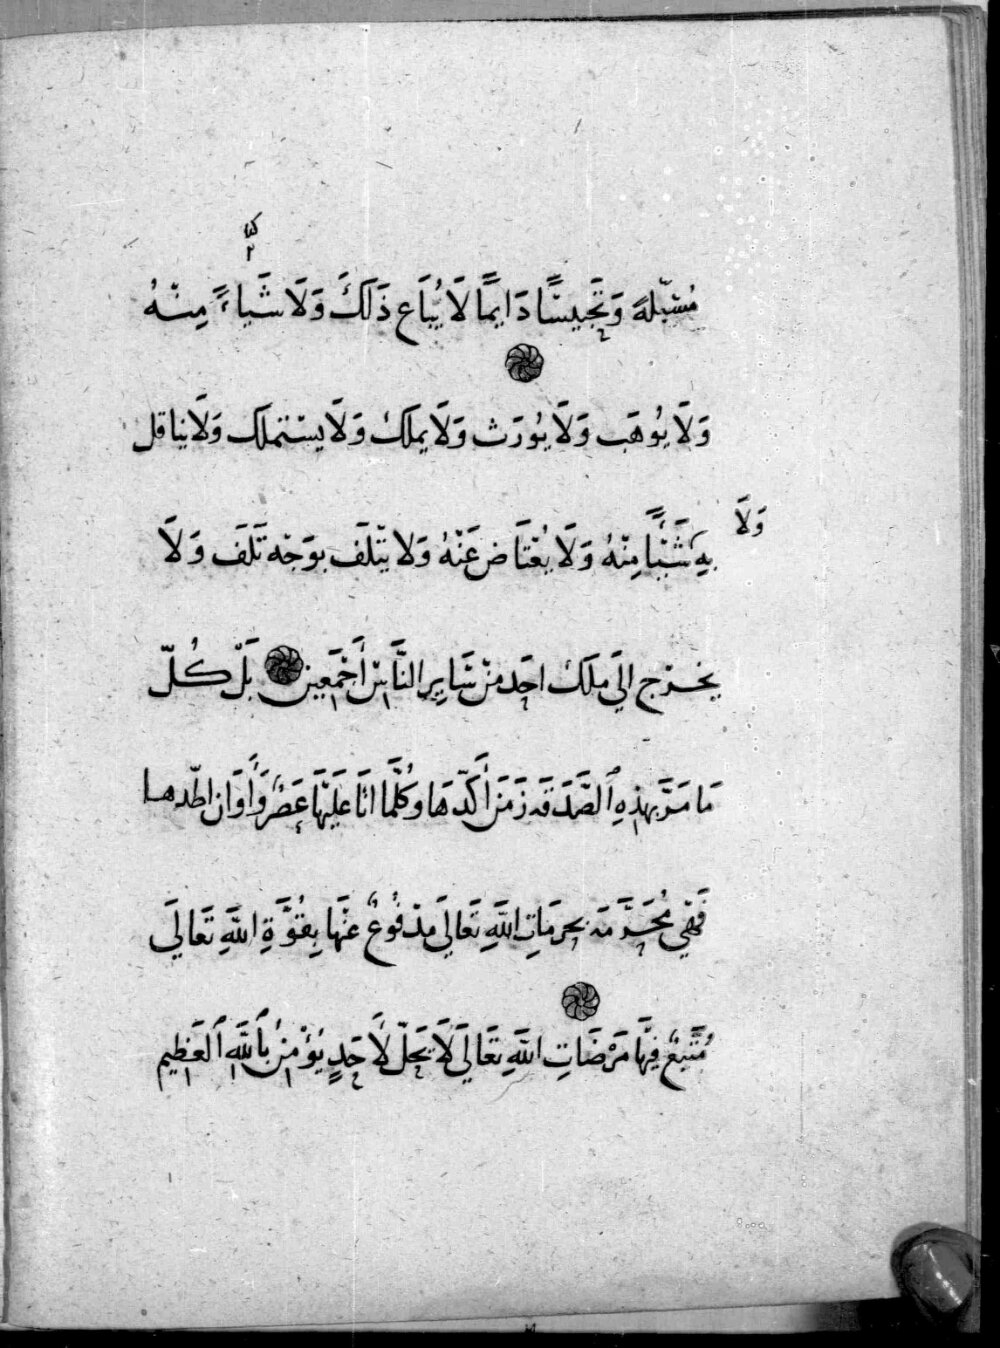 مُسَبَّلةً وَتَحْبِيسًا دَايمًا لَا يُبَاع ذَلَكَ وَلَا شَياءً مِنْهُ
وَلَا يُوهَب وَلَا يُورَث وَلَا يملكُ وَلَا يسْتملَك وَلَا يناقل
بِهِ شَيْئًا مِنْهُ وَلَا يُعْتَاض عَنْهُ وَلا يتْلَف بوَجْه تَلَف وَلَا
وَلَا
يخرْج الَي ملَكُ احَد منْ سَايِرِ النَّاسْ أَجْمَعين بَلْ كُلّ
مَا مَرَّ بهذِهِ ٱلصَّدَقَه زَمَن أَكّدهَا وكُلَّما اتَا عَلَيْهَا عَصْرٌ وَأَوَان اطّدها
فَهْيَ مُحَرَّمَه بحرمَاتِ اللَّهِ تَعَالَي مدْفُوعٌ عَنْهَا بِقُوَّةِ اللَّهِ تَعَالَيَ
مُتَّبَعٌ فِيهَا مَرْضَاتِ اللَّهِ تعَالَيَ لَا يَحلّ لأَحَدٍ يُؤْمِنُ بِٱللَّهِ ٱلْعَظِيمِ